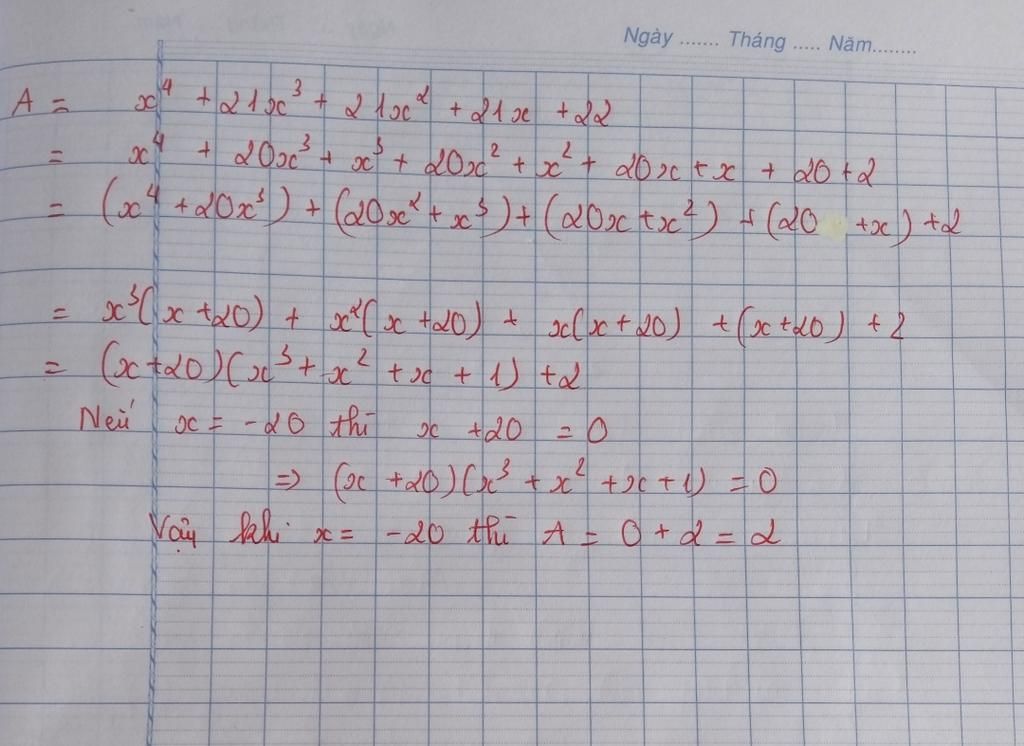 Ngày ....... Tháng ..... Năm........
A = x⁴ + 21x³ + 21x² + 21x + 22
= x⁴ + 20x³ + x³ + 20x² + x² + 20x + x + 20 + 2
= (x⁴ + 20x³) + (20x² + x³) + (20x + x²) + (20 + x) + 2
= x³(x + 20) + x²(x + 20) + x(x + 20) + (x + 20) + 2
= (x + 20)(x³ + x² + x + 1) + 2
Nếu x = -20 thì x + 20 = 0
=> (x + 20)(x³ + x² + x + 1) = 0
Vậy khi x = -20 thì A = 0 + 2 = 2